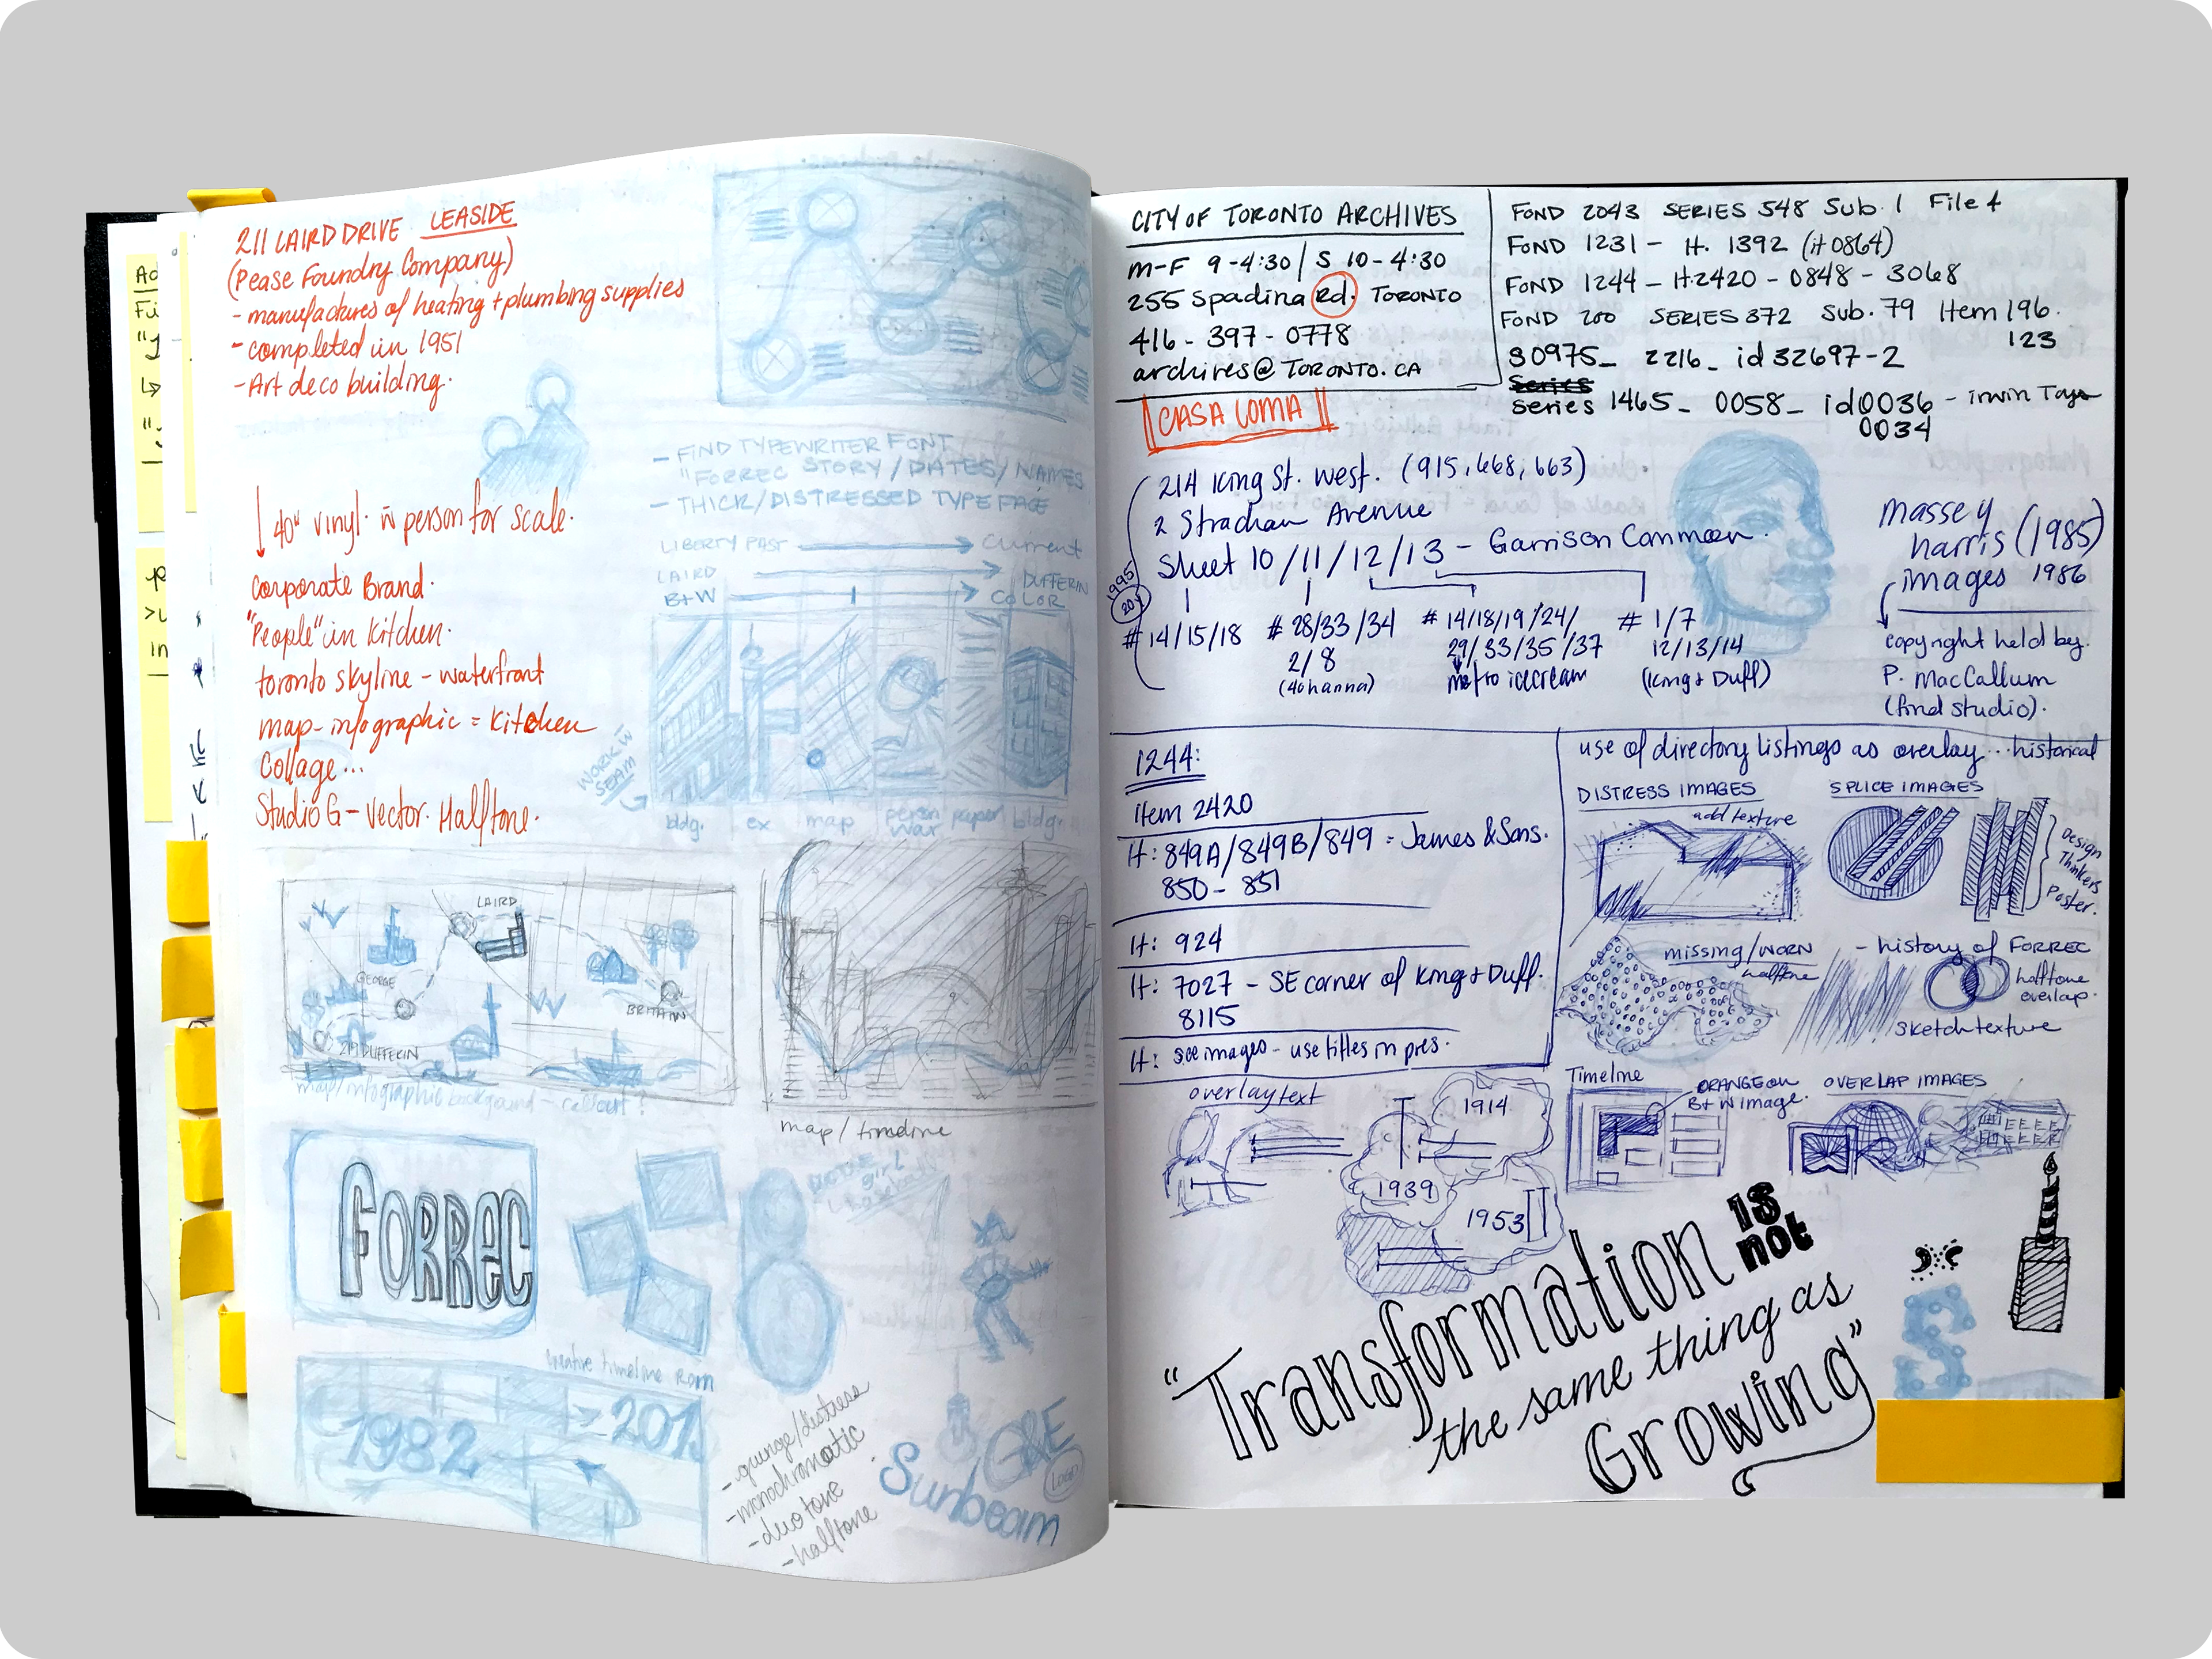 211 LAIRD DRIVE LEASIDE
(Pease Foundry Company)
- manufactures of heating + plumbing supplies
- completed in 1951
- Art deco building.
- FIND TYPEWRITER FONT
"FORREC STORY / DATES / NAMES
- THICK/DISTRESSED TYPEFACE
40" vinyl w person for scale.
Corporate Brand.
"People" in Kitchen.
toronto skyline - waterfront
map - infographic = Kitchen
Collage...
Studio G - vector. Halftone.
LIBERTY PAST → CURRENT
LAIRD → DUFFERIN
B+W → COLOR
WORK W
SEAM
bldg. ex map person paper bldg.
war
LAIRD
GEORGE
BRITAIN
219 DUFFERIN
map/infographic background - callout?
map / timeline
FORREC
girl
Creative timeline Rom
1982 → 201
- grunge/distress
- monochromatic
- duo tone
- halftone
G&E
LOGO
Sunbeam
Ad
Fi
"y
in
CITY OF TORONTO ARCHIVES
M-F 9-4:30 / S 10-4:30
255 Spadina Rd. TORONTO
416-397-0778
archives@TORONTO.CA
FOND 2043 SERIES 548 Sub. 1 File 4
FOND 1231 - It. 1392 (it 0864)
FOND 1244 - It. 2420 - 0848 - 3068
FOND 200 SERIES 372 Sub. 79 Item 196.
123
S0975_ 2216_ id 32697-2
Series
Series 1465_ 0058_ id0036 - irwin Toys
0034
CASA LOMA
214 King St. West. (915, 668, 663)
2 Strachan Avenue
Sheet 10/11/12/13 - Garrison Common.
1995
20
# 14/15/18 # 28/33/34 # 14/18/19/24/ # 1/7
2/8 29/33/35/37 12/13/14
(40 hanna) metro icecream (King + Duff)
Massey
harris (1985)
images 1986
copyright held by.
P. MacCallum
(find studio).
1244:
item 2420
It: 849A/849B/849 = James & Sons.
850 - 851
It: 924
It: 7027 - SE corner of King + Duff.
8115
It: see images - use titles in pres.
use of directory listings as overlay... historical
DISTRESS IMAGES
add texture
SPLICE IMAGES
Design
Thinkers
Poster.
missing/WORN
halftone
- history of FORREC
halftone
overlap.
sketch texture
overlay text
1914
1939
1953
Timeline
ORANGE on
B+W image.
OVERLAP IMAGES
"Transformation is
not
the same thing as
Growing"
S